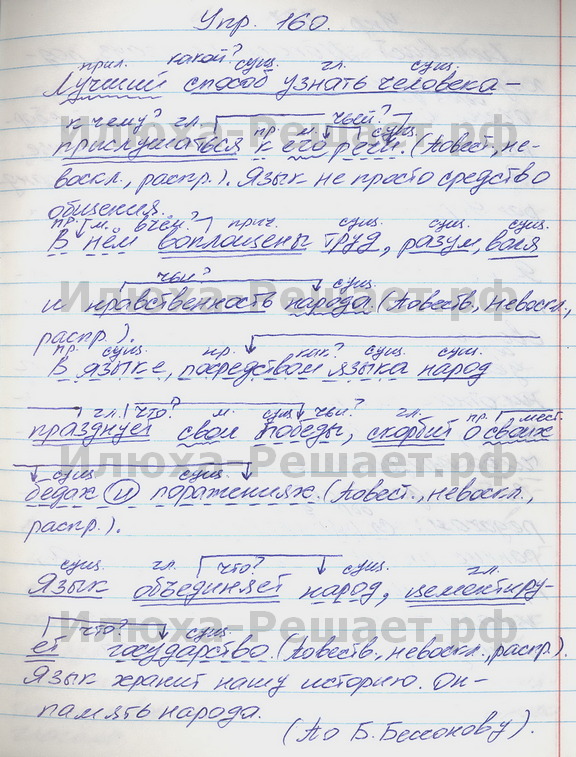 Упр. 160.
прил. какой? сущ. гл. сущ.
Лучший способ узнать человека –
к чему? гл. чьей?
Илюха-Решает.рф
пр. м. сущ.
прислушаться к его речи. (Повест., не-
воскл., распр.). Язык не просто средство
общения.
пр. м. в чём? прич. сущ. сущ. сущ.
В нём воплощены труд, разум, воля
чья? сущ.
и нравственность народа. (Повеств., невоскл.,
Илюха-Решает.рф
распр.).
пр. сущ. пр. как? сущ. сущ.
В языке, посредством языка народ
гл. что? м. сущ. чьи? гл. пр. мест.
празднует свои победы, скорбит о своих
Илюха-Решает.рф
сущ. сущ.
бедах и поражениях. (Повест., невоскл.,
распр.).
сущ. гл. что? сущ. гл.
Язык объединяет народ, цементиру-
Илюха-Решает.рф
что? сущ.
ет государство. (Повеств., невоскл., распр.).
Язык хранит нашу историю. Он –
память народа.
(По Б. Бессонову).